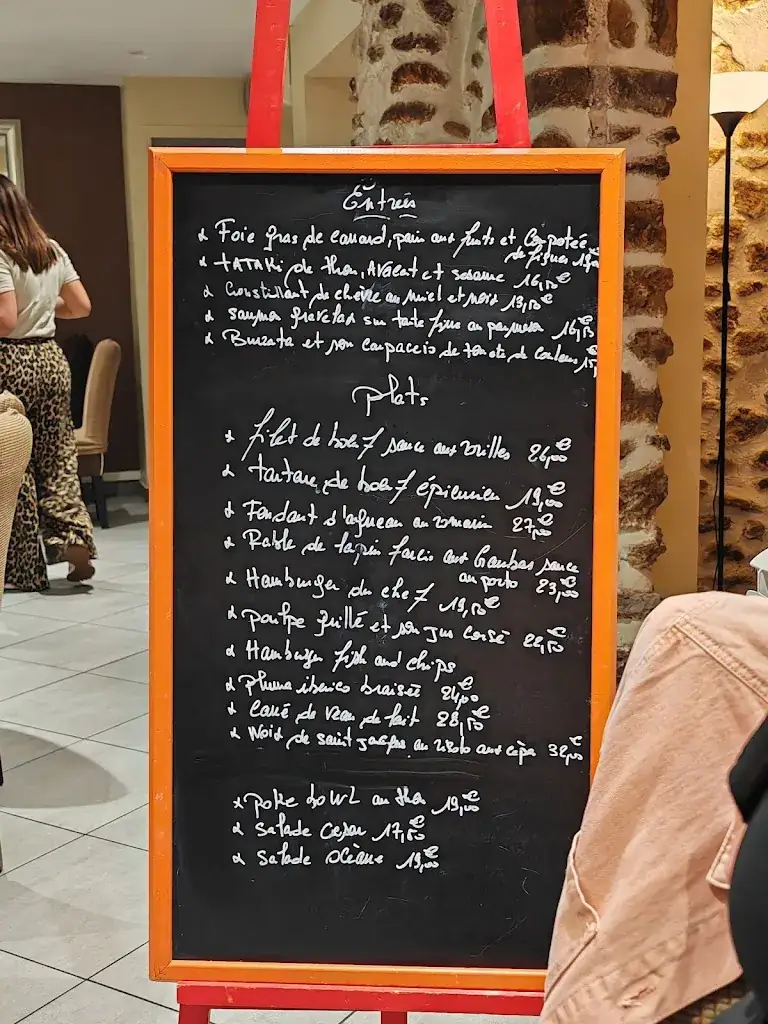 Entrées
Foie gras de canard, pain aux fruits et compotée
de figues
TATAKI de thon, Avocat et sesame 16,50€
Croustillant de chèvre au miel et noix 13,50€
saumon gravelax sur tarte fine au parmesan 16,50€
Burrata et son carpaccio de tomate de couleurs 15,
Plats
filet de boeuf sauce aux morilles 26,00€
tartare de boeuf épicurien 19,00€
Fondant d'agneau au romarin 27,00€
Rable de lapin farcis aux Gambas sauce
au porto 23,00€
Hamburger du chef 19,50€
poulpe grillé et son jus corsé 22,50€
Hamburger fish and chips
Pluma iberico braisée 24,00€
Carré de veau de lait 28,50€
Noix de saint jacques au risoto aux cèpes 32,00€
poke bowl au thon 19,00€
salade cesar 17,50€
salade océane 19,00€